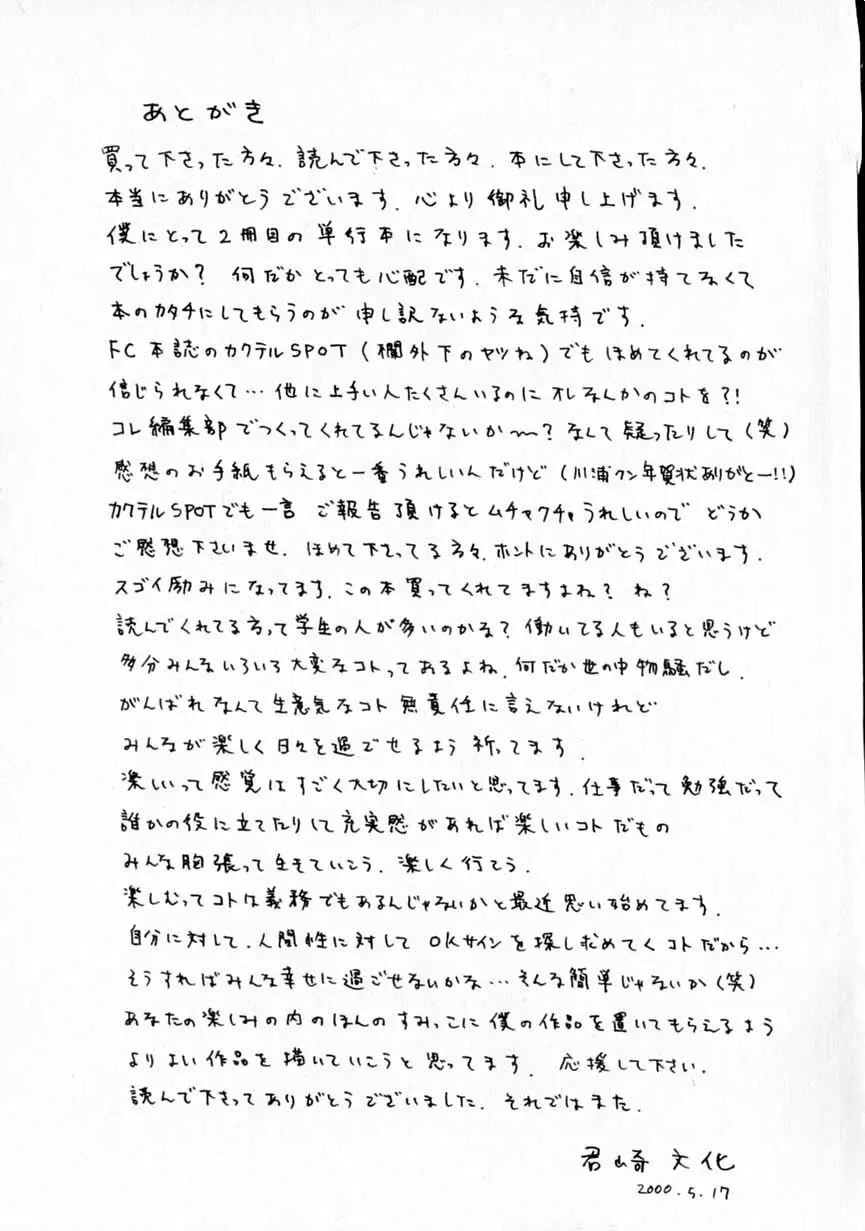 あとがき
買って下さった方々、読んで下さった方々、本にして下さった方々、
本当にありがとうございます。心より御礼申し上げます。
僕にとって2冊目の単行本になります。お楽しみ頂けました
でしょうか? 何だかとっても心配です。未だに自信が持てなくて
本のカタチにしてもらうのが申し訳ないような気持です。
FC本誌のカクテルSPOT(欄外下のヤツね)でもほめてくれてるのが
信じられなくて…他に上手い人たくさんいるのにオレなんかのコトを?!
コレ編集部でつくってくれてるんじゃないか〜?なんて疑ったりして(笑)
感想のお手紙もらえると一番うれしいんだけど(川浦クン年賀状ありがとー!!)
カクテルSPOTでも一言 ご報告頂けるとムチャクチャうれしいので どうか
ご感想下さいませ。ほめて下さってる方々、ホントにありがとうございます。
スゴイ励みになってます。この本買ってくれてますよね? ね?
読んでくれてる方って学生の人が多いのかな?働いてる人もいると思うけど
多分みんないろいろ大変なコトってあるよね。何だか世の中物騒だし。
がんばれなんて生意気なコト無責任に言えないけれど
みんなが楽しく日々を過ごせるよう祈ってます。
楽しいって感覚はすごく大切にしたいと思ってます。仕事だって勉強だって
誰かの役に立てたりして充実感があれば楽しいコトだもの
みんな胸張って生きていこう。楽しく行こう。
楽しむってコトは義務でもあるんじゃないかと最近思い始めてます。
自分に対して、人間性に対してOKサインを探し求めてくコトだから…
そうすればみんな幸せに過ごせないかな…そんな簡単じゃないか(笑)
あなたの楽しみの内のほんのすみっこに僕の作品を置いてもらえるよう
よりよい作品を描いていこうと思ってます。応援して下さい。
読んで下さってありがとうございました。それではまた。
君崎文化
2000.5.17